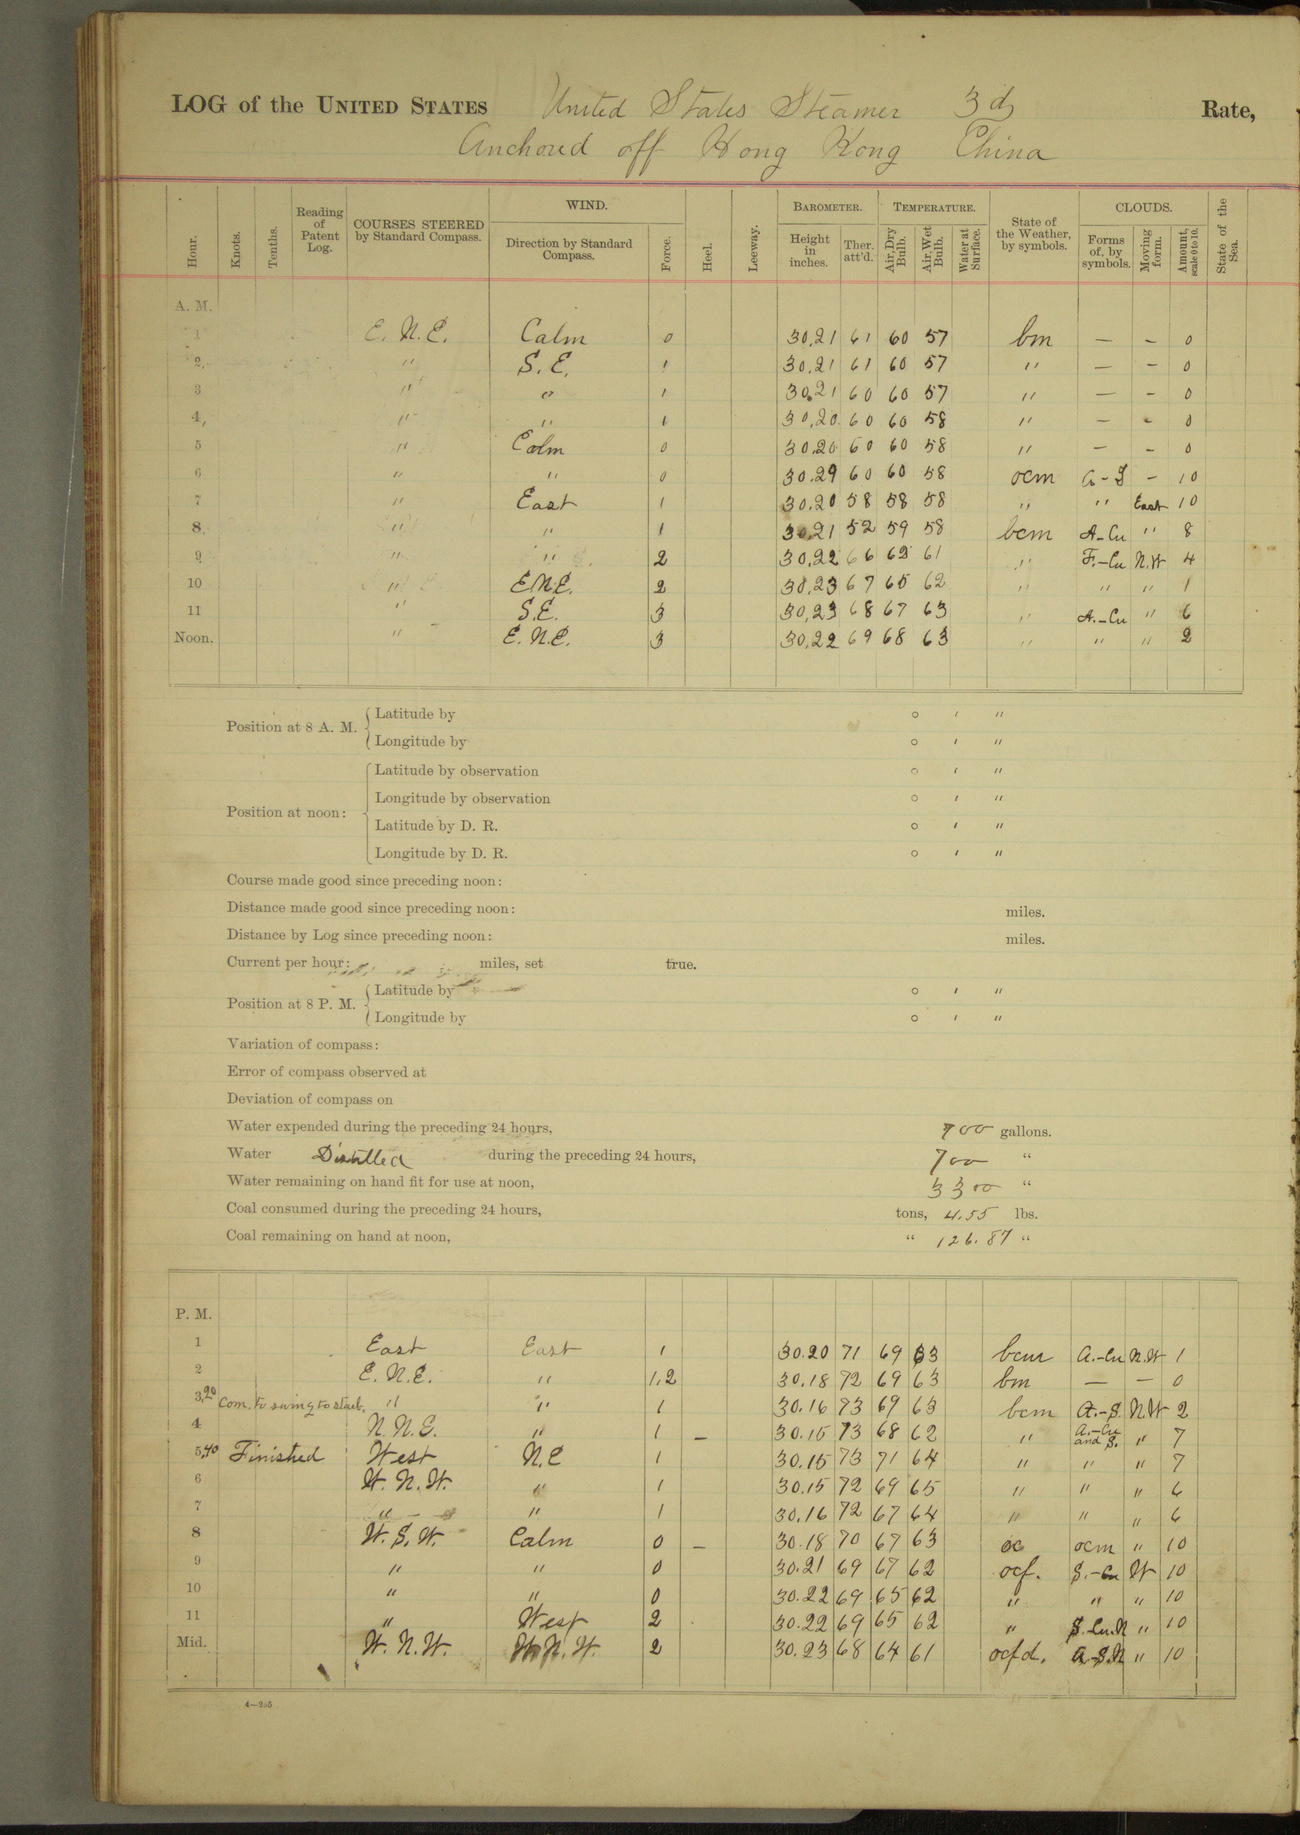 LOG of the UNITED STATES United States Steamer 3d Rate,
Anchored off Hong Kong China
Hour. Knots. Tenths. Reading of Patent Log. COURSES STEERED by Standard Compass. WIND. Direction by Standard Compass. Force. Heel. Leeway. BAROMETER. Height in inches. Ther. att'd. TEMPERATURE. Air, Dry Bulb. Air, Wet Bulb. Water at Surface. State of the Weather, by symbols. CLOUDS. Forms of, by symbols. Moving form. Amount, scale 0 to 10. State of the Sea.
A. M.
1 E. N. E. Calm 0 30.21 61 60 57 bm — – 0
2 " S. E. 1 30.21 61 60 57 " — – 0
3 " " 1 30.21 60 60 57 " — – 0
4 " " 1 30.20 60 60 58 " – – 0
5 " Calm 0 30.20 60 60 58 " – – 0
6 " " 0 30.29 60 60 58 ocm a-S – 10
7 " East 1 30.20 58 58 58 " " East 10
8 " " 1 30.21 52 59 58 bcm A-Cu " 8
9 " " 2 30.22 66 62 61 " F.-Cu N.W 4
10 " E.N.E. 2 30.23 67 65 62 " " " 1
11 " S.E. 3 30.23 68 67 63 " A.-Cu " 6
Noon. " E. N. E. 3 30.22 69 68 63 " " " 2
Position at 8 A. M. Latitude by ° ' "
Longitude by ° ' "
Position at noon: Latitude by observation ° ' "
Longitude by observation ° ' "
Latitude by D. R. ° ' "
Longitude by D. R. ° ' "
Course made good since preceding noon:
Distance made good since preceding noon: miles.
Distance by Log since preceding noon: miles.
Current per hour: miles, set true.
Position at 8 P. M. Latitude by ° ' "
Longitude by ° ' "
Variation of compass:
Error of compass observed at
Deviation of compass on
Water expended during the preceding 24 hours, 700 gallons.
Water Distilled during the preceding 24 hours, 700 "
Water remaining on hand fit for use at noon, 3300 "
Coal consumed during the preceding 24 hours, tons, 4.55 lbs.
Coal remaining on hand at noon, " 126.87 "
P. M.
1 East East 1 30.20 71 69 63 bcm A.-Cu N.W 1
2 E. N. E. " 1,2 30.18 72 69 63 bm — — 0
3,20 Com. to swing to starb. " " 1 30.16 73 69 63 bcm A.-S. N.W 2
4 N. N. E. " 1 – 30.15 73 68 62 " A.-Cu and S. " 7
5,40 Finished West N.E 1 30.15 73 71 64 " " " 7
6 W. N. W. " 1 30.15 72 69 65 " " " 6
7 " " 1 30.16 72 67 64 " " " 6
8 W. S. W. Calm 0 – 30.18 70 67 63 oc ocm " 10
9 " " 0 30.21 69 67 62 ocf. S.-Cu W 10
10 " " 0 30.22 69 65 62 " " " 10
11 " West 2 30.22 69 65 62 " S.Cu.N " 10
Mid. W. N. W. W. N. W. 2 30.23 68 64 61 ocfd. a-S.N " 10
4—205